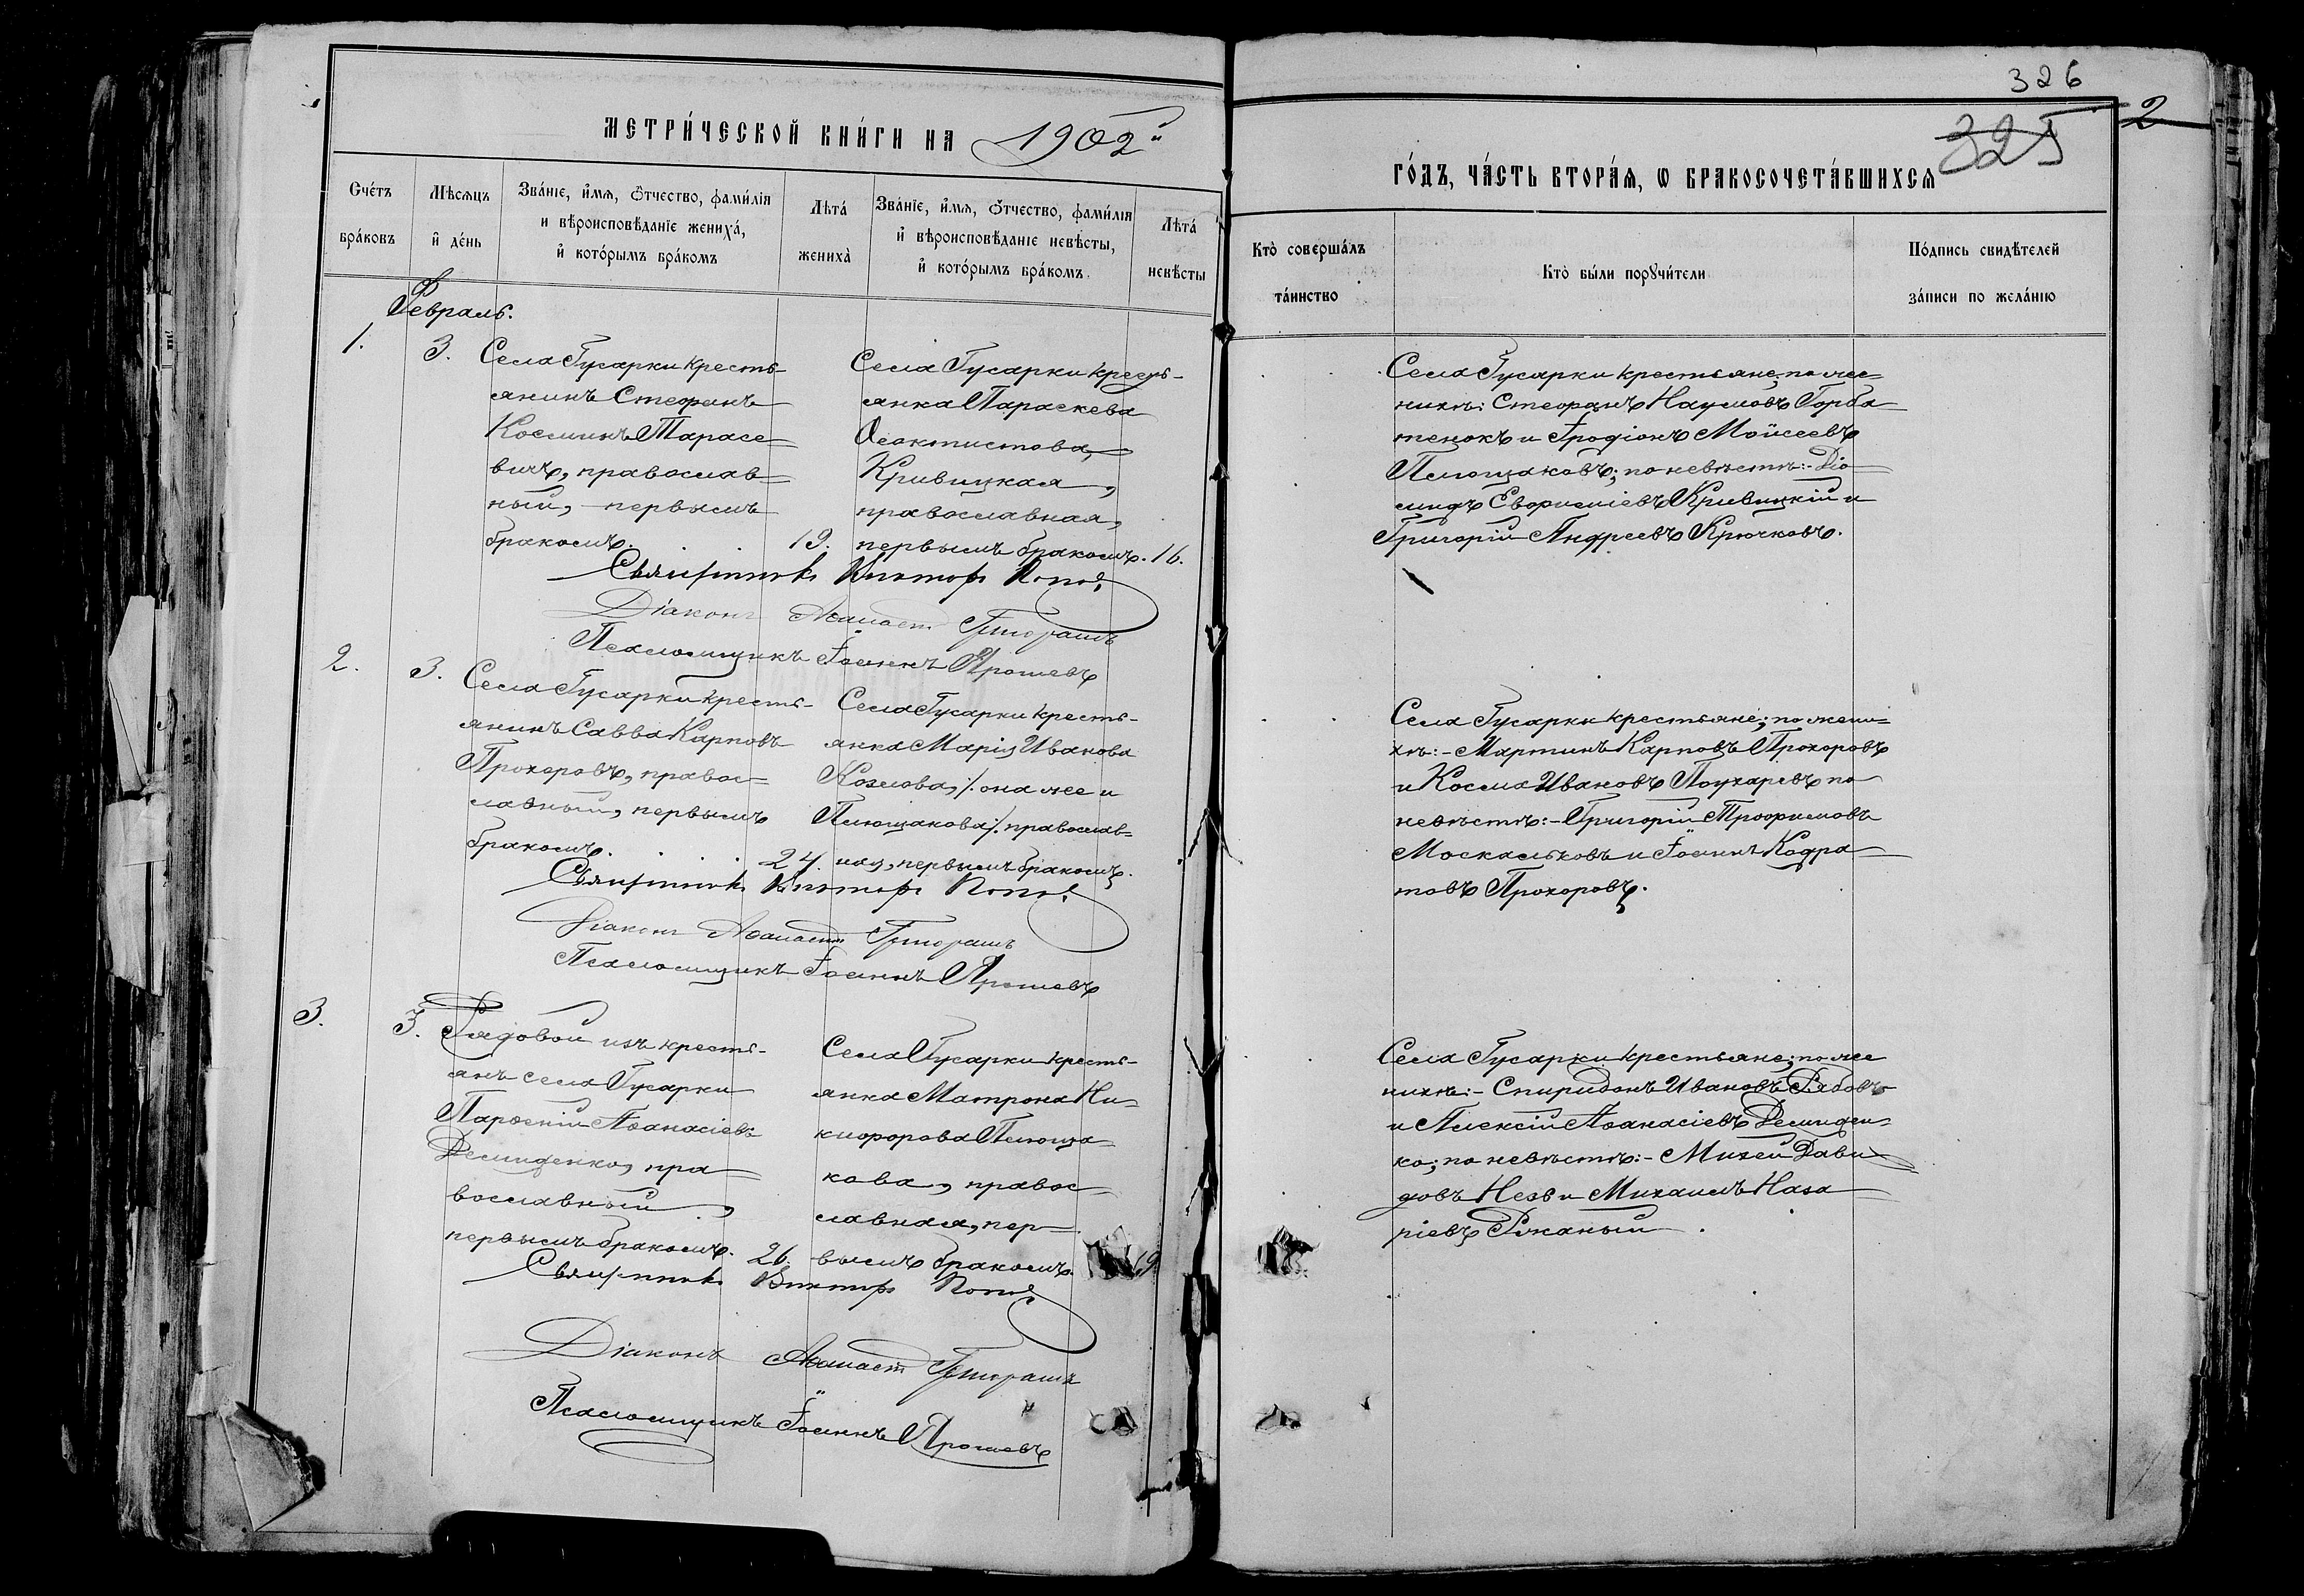 326
2
325
МЕТРИ́ЧЕСКОЙ КНИ́ГИ НА 1902й
ГО́ДЪ, ЧА́СТЬ ВТОРА́Я, Ѡ БРАКОСОЧЕТА́ВШИХСЯ
Сче́тъ бра́ковъ
Мѣ́сяцъ и҆ де́нь
Зва́нїе, и҆́мя, ѻ҆́тчество, фами́лїя и вѣроисповѣ́данїе жениха́, и҆ кото́рымъ бра́комъ
Лѣта́ жениха̀
Зва́нїе, и҆́мя, ѻ҆́тчество, фами́лїя и҆ вѣроисповѣ́данїе невѣ́сты, и҆ кото́рымъ бра́комъ
Лѣта́ невѣ́сты
Кто̀ соверша́лъ та́инство
Кто̀ бы́ли порꙋчи́тели
По́дпись свидѣ́телей за́писи по жела́нїю
Февраль.
1.
3.
Села Гусарки кресть-
янинъ Стефанъ
Косминъ Тарасе-
вичъ, православ-
ный, первымъ
бракомъ.
19.
Села Гусарки кресть-
янка Параскева
Феоктистова
Кривицкая,
православная,
первымъ бракомъ.
16.
Села Гусарки крестьяне, по же-
нихѣ: Стефанъ Наумовъ Горба-
тенокъ и Іродіонъ Моисеевъ
Плющаковъ; по невѣстѣ:- Діо-
мидъ Евфиміевъ Кривицкій и
Григорій Андреевъ Крючковъ.
Священникъ Викторъ Поповъ
Діаконъ Аѳанасій Григорашъ
Псаломщикъ Іоаннъ Ярошевъ
2.
3.
Села Гусарки кресть-
янинъ Савва Карповъ
Прохоровъ, правос-
лавный, первымъ
бракомъ.
24.
Села Гусарки кресть-
янка Марія Иванова
Козлова, /: она же и
Плющакова/: православ-
ная, первымъ бракомъ.
Села Гусарки крестьяне; по жени-
хѣ:- Мартинъ Карповъ Прохоровъ
и Косма Ивановъ Поухаревъ по
невѣстѣ:- Григорій Трофимовъ
Москальковъ и Іоаннъ Кодра-
товъ Прохоровъ.
Священникъ Викторъ Поповъ
Діаконъ Аѳанасій Григорашъ
Псаломщикъ Іоаннъ Ярошевъ
3.
3.
Рядовой изъ кресть-
янъ села Гусарки
Парѳеній Аѳанасіевъ
Демиденко, пра-
вославный,
первымъ бракомъ.
26.
Села Гусарки кресть-
янка Матрона Ни-
кифорова Плюща-
кова, правос-
лавная, пер-
вымъ бракомъ.
19
Села Гусарки крестьяне; по же
нихѣ:- Спиридонъ Ивановъ Рябовъ
и Алексій Аѳанасіевъ Демиден-
ко; по невѣстѣ:- Михей Дави-
довъ Незв и Михаилъ Наза-
ріевъ Ржаный.
Священникъ Викторъ Поповъ
Діаконъ Аѳанасій Григорашъ
Псаломщикъ Іоаннъ Ярошевъ